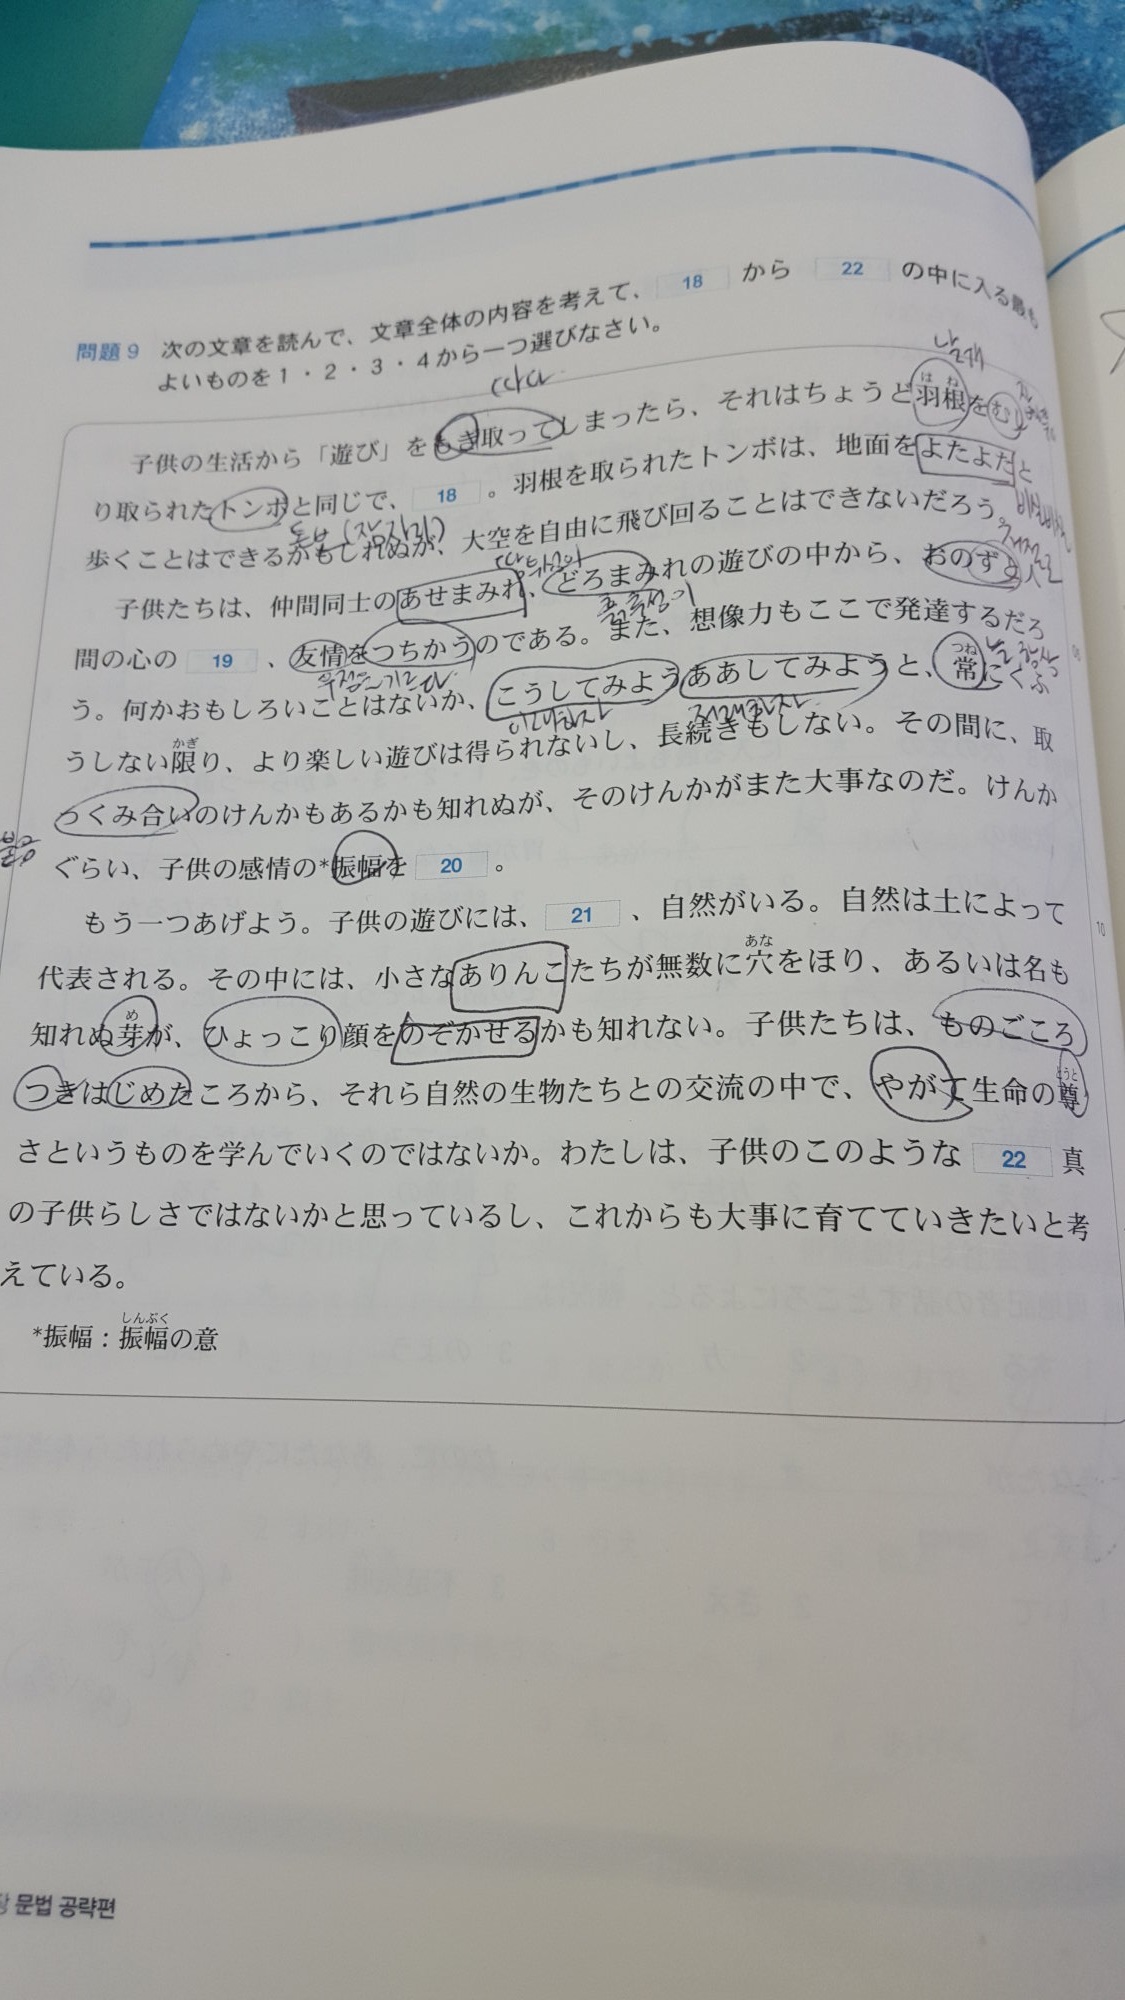 問題9 次の文章を読んで、文章全体の内容を考えて、 18 から 22 の中に入る最も
よいものを1・2・3・4から一つ選びなさい。
따다
날개
子供の生活から「遊び」をもぎ取ってしまったら、それはちょうど羽根をむし
はね
り取られたトンボと同じで、 18 。羽根を取られたトンボは、地面をよたよたと
톤보 (잠자리)
비실비실
歩くことはできるかもしれぬが、大空を自由に飛び回ることはできないだろう。
땀투성이
저절로
子供たちは、仲間同士のあせまみれ、どろまみれの遊びの中から、おのずと人
흙투성이
間の心の 19 、友情をつちかうのである。また、想像力もここで発達するだろ
우정을 기르다
늘 항상
つね
う。何かおもしろいことはないか、こうしてみようああしてみようと、常にくふ
이래하자
저래하자
かぎ
うしない限り、より楽しい遊びは得られないし、長続きもしない。その間に、取
っくみ合いのけんかもあるかも知れぬが、そのけんかがまた大事なのだ。けんか
ぐらい、子供の感情の*振幅を 20 。
もう一つあげよう。子供の遊びには、 21 、自然がいる。自然は土によって
10
あな
代表される。その中には、小さなありんこたちが無数に穴をほり、あるいは名も
め
知れぬ芽が、ひょっこり顔をのぞかせるかも知れない。子供たちは、ものごころ
とうと
つきはじめたころから、それら自然の生物たちとの交流の中で、やがて生命の尊
さというものを学んでいくのではないか。わたしは、子供のこのような 22 真
の子供らしさではないかと思っているし、これからも大事に育てていきたいと考
えている。
しんぷく
*振幅：振幅の意
장 문법 공략편